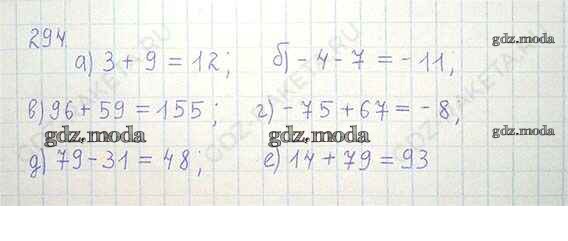 294.
а) 3 + 9 = 12; б) - 4 - 7 = - 11; gdz.moda
GDZ-RAKETA.RU
в) 96 + 59 = 155; г) - 75 + 67 = - 8;
gdz.moda gdz.moda
д) 79 - 31 = 48; е) 14 + 79 = 93